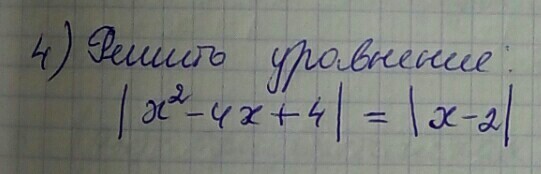 4) Решить уравнение:
|x²-4x+4| = |x-2|